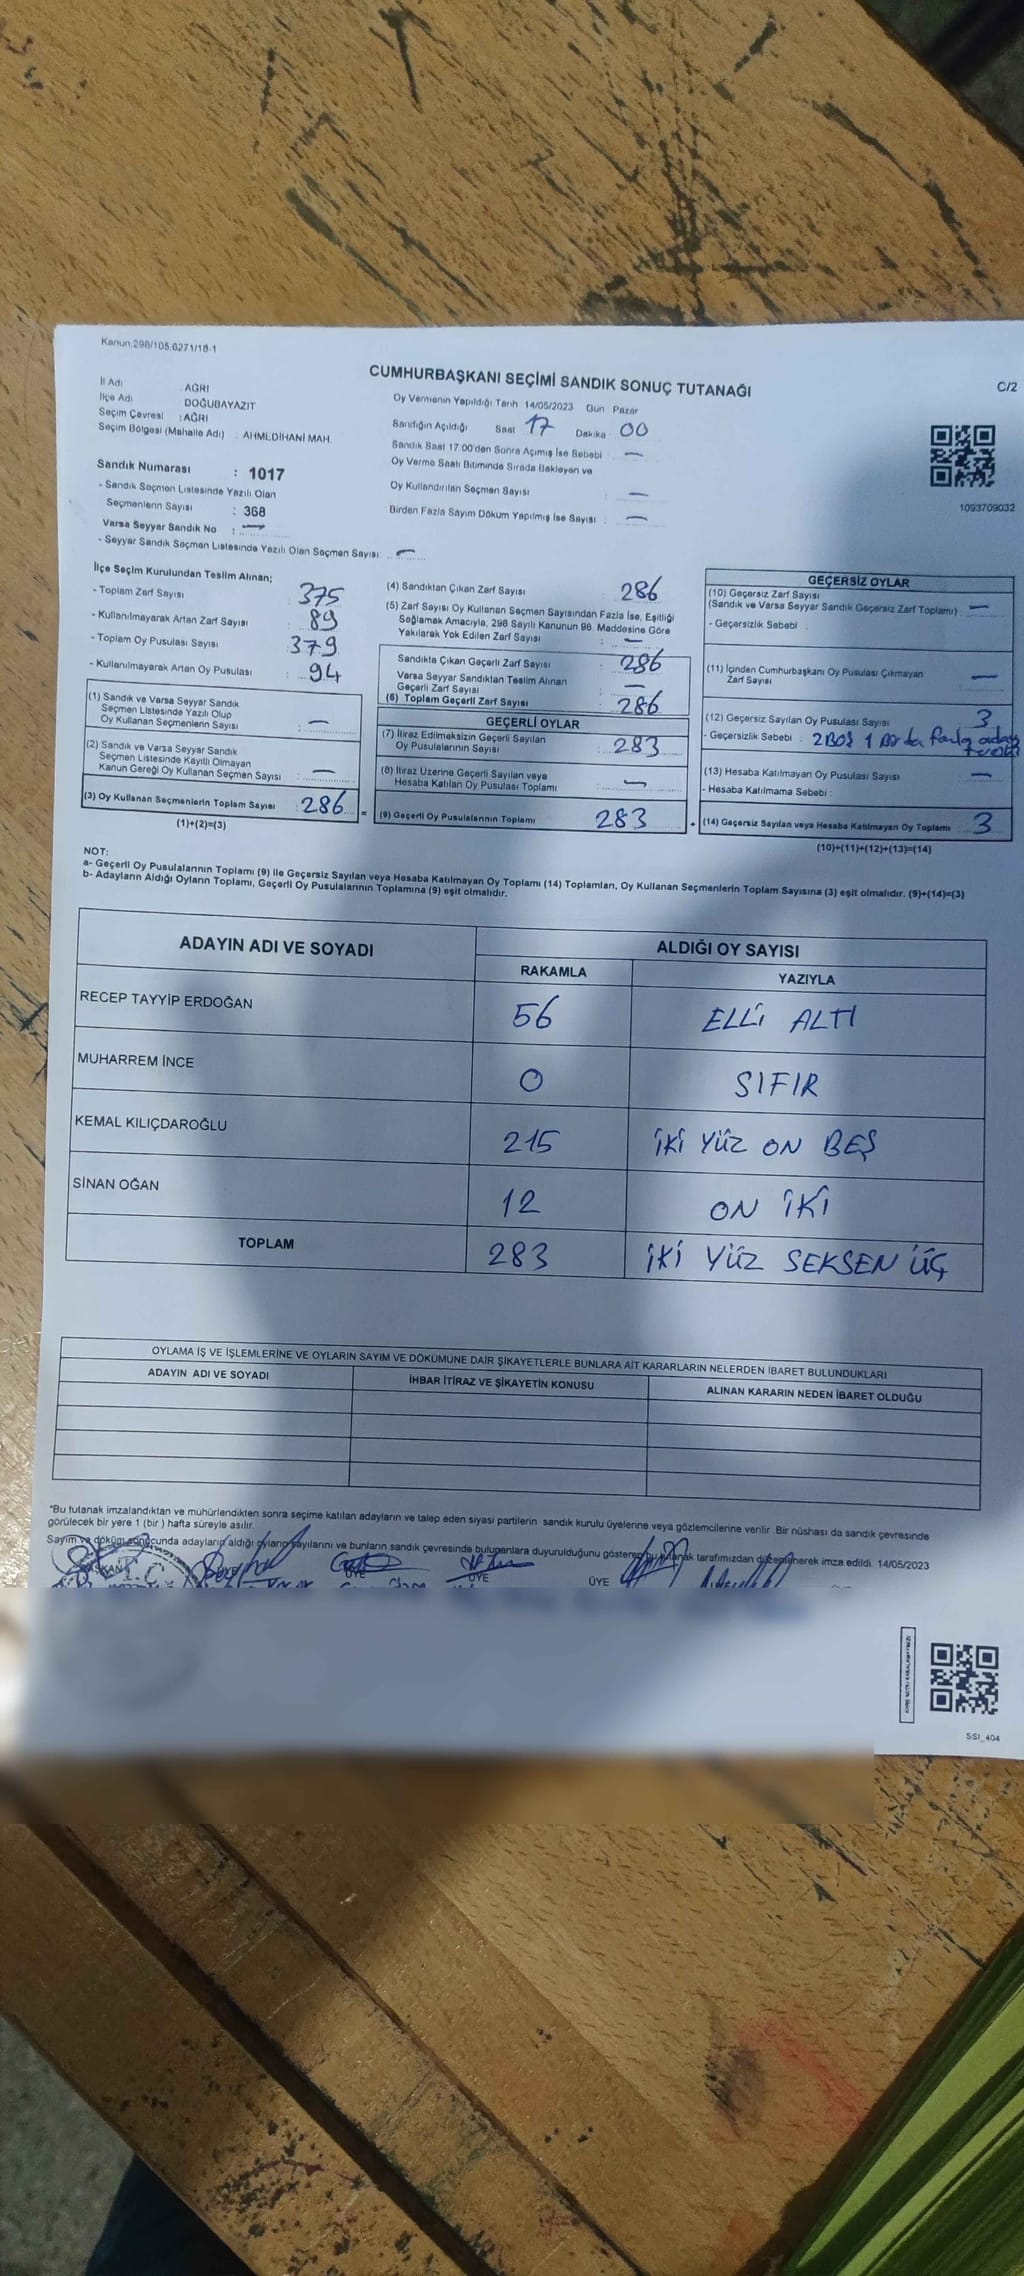 Kanun,298/105,6271/18-1
CUMHURBAŞKANI SEÇİMİ SANDIK SONUÇ TUTANAĞI
C/2
İl Adı : AĞRI
İlçe Adı : DOĞUBAYAZIT
Seçim Çevresi : AĞRI
Seçim Bölgesi (Mahalle Adı) : AHMEDİHANİ MAH.
Sandık Numarası : 1017
- Sandık Seçmen Listesinde Yazılı Olan
Seçmenlerin Sayısı : 368
Varsa Seyyar Sandık No : —
- Seyyar Sandık Seçmen Listesinde Yazılı Olan Seçmen Sayısı : —
Oy Vermenin Yapıldığı Tarih 14/05/2023 Gün Pazar
Sandığın Açıldığı Saat 17 Dakika 00
Sandık Saat 17.00'den Sonra Açımış İse Sebebi : —
Oy Verme Saati Bitiminde Sırada Bekleyen ve
Oy Kullandırılan Seçmen Sayısı : —
Birden Fazla Sayım Döküm Yapılmış İse Sayısı : —
1093709032
İlçe Seçim Kurulundan Teslim Alınan;
- Toplam Zarf Sayısı : 375
- Kullanılmayarak Artan Zarf Sayısı : 89
- Toplam Oy Pusulası Sayısı : 379
- Kullanılmayarak Artan Oy Pusulası : 94
(1) Sandık ve Varsa Seyyar Sandık
Seçmen Listesinde Yazılı Olup
Oy Kullanan Seçmenlerin Sayısı : —
(2) Sandık ve Varsa Seyyar Sandık
Seçmen Listesinde Kayıtlı Olmayan
Kanun Gereği Oy Kullanan Seçmen Sayısı : —
(3) Oy Kullanan Seçmenlerin Toplam Sayısı : 286 =
(1)+(2)=(3)
(4) Sandıktan Çıkan Zarf Sayısı : 286
(5) Zarf Sayısı Oy Kullanan Seçmen Sayısından Fazla İse, Eşitliği
Sağlamak Amacıyla, 298 Sayılı Kanunun 98. Maddesine Göre
Yakılarak Yok Edilen Zarf Sayısı : —
Sandıkta Çıkan Geçerli Zarf Sayısı : 286
Varsa Seyyar Sandıktan Teslim Alınan
Geçerli Zarf Sayısı : —
(6) Toplam Geçerli Zarf Sayısı : 286
GEÇERLİ OYLAR
(7) İtiraz Edilmeksizin Geçerli Sayılan
Oy Pusulalarının Sayısı : 283
(8) İtiraz Üzerine Geçerli Sayılan veya
Hesaba Katılan Oy Pusulası Toplamı : —
(9) Geçerli Oy Pusulalarının Toplamı : 283 +
GEÇERSİZ OYLAR
(10) Geçersiz Zarf Sayısı
(Sandık ve Varsa Seyyar Sandık Geçersiz Zarf Toplamı) : —
- Geçersizlik Sebebi :
(11) İçinden Cumhurbaşkanı Oy Pusulası Çıkmayan
Zarf Sayısı : —
(12) Geçersiz Sayılan Oy Pusulası Sayısı : 3
- Geçersizlik Sebebi : 2 BOŞ 1 Birden fazla aday
(13) Hesaba Katılmayan Oy Pusulası Sayısı : —
- Hesaba Katılmama Sebebi :
(14) Geçersiz Sayılan veya Hesaba Katılmayan Oy Toplamı : 3
(10)+(11)+(12)+(13)=(14)
NOT:
a- Geçerli Oy Pusulalarının Toplamı (9) ile Geçersiz Sayılan veya Hesaba Katılmayan Oy Toplamı (14) Toplamları, Oy Kullanan Seçmenlerin Toplam Sayısına (3) eşit olmalıdır. (9)+(14)=(3)
b- Adayların Aldığı Oyların Toplamı, Geçerli Oy Pusulalarının Toplamına (9) eşit olmalıdır.
ADAYIN ADI VE SOYADI
ALDIĞI OY SAYISI
RAKAMLA YAZIYLA
RECEP TAYYİP ERDOĞAN 56 ELLİ ALTI
MUHARREM İNCE 0 SIFIR
KEMAL KILIÇDAROĞLU 215 İKİ YÜZ ON BEŞ
SİNAN OĞAN 12 ON İKİ
TOPLAM 283 İKİ YÜZ SEKSEN ÜÇ
OYLAMA İŞ VE İŞLEMLERİNE VE OYLARIN SAYIM VE DÖKÜMÜNE DAİR ŞİKAYETLERLE BUNLARA AİT KARARLARIN NELERDEN İBARET BULUNDUKLARI
ADAYIN ADI VE SOYADI İHBAR İTİRAZ VE ŞİKAYETİN KONUSU ALINAN KARARIN NEDEN İBARET OLDUĞU
*Bu tutanak imzalandıktan ve mühürlendikten sonra seçime katılan adayların ve talep eden siyasi partilerin sandık kurulu üyelerine veya gözlemcilerine verilir. Bir nüshası da sandık çevresinde
görülecek bir yere 1 (bir ) hafta süreyle asılır.
Sayım ve döküm sonucunda adayların aldığı oyların sayılarını ve bunların sandık çevresinde bulunanlara duyurulduğunu gösteren bu tutanak tarafımızdan düzenlenerek imza edildi. 14/05/2023
BAŞKAN ÜYE ÜYE ÜYE
SSI_404